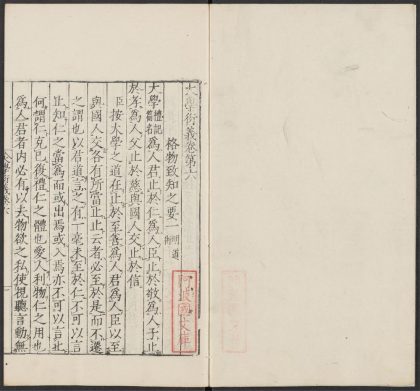 大學衍義卷第六
格物致知之要一 明道術
大學 禮記篇名 爲人君止於仁爲人臣止於敬爲人子止
於孝爲人父止於慈與國人交止於信
臣按大學之道在止於至善爲人君爲人臣以至
與國人交各有所當止止云者必至於是而不遷
之謂也以君道言之有一毫未至於仁不可以言
止知仁之當爲而或出焉或入焉亦不可以言止
何謂仁克已復禮仁之體也愛人利物仁之用也
爲人君者内必有以去物欲之私使視聽言動無
阿波國文庫